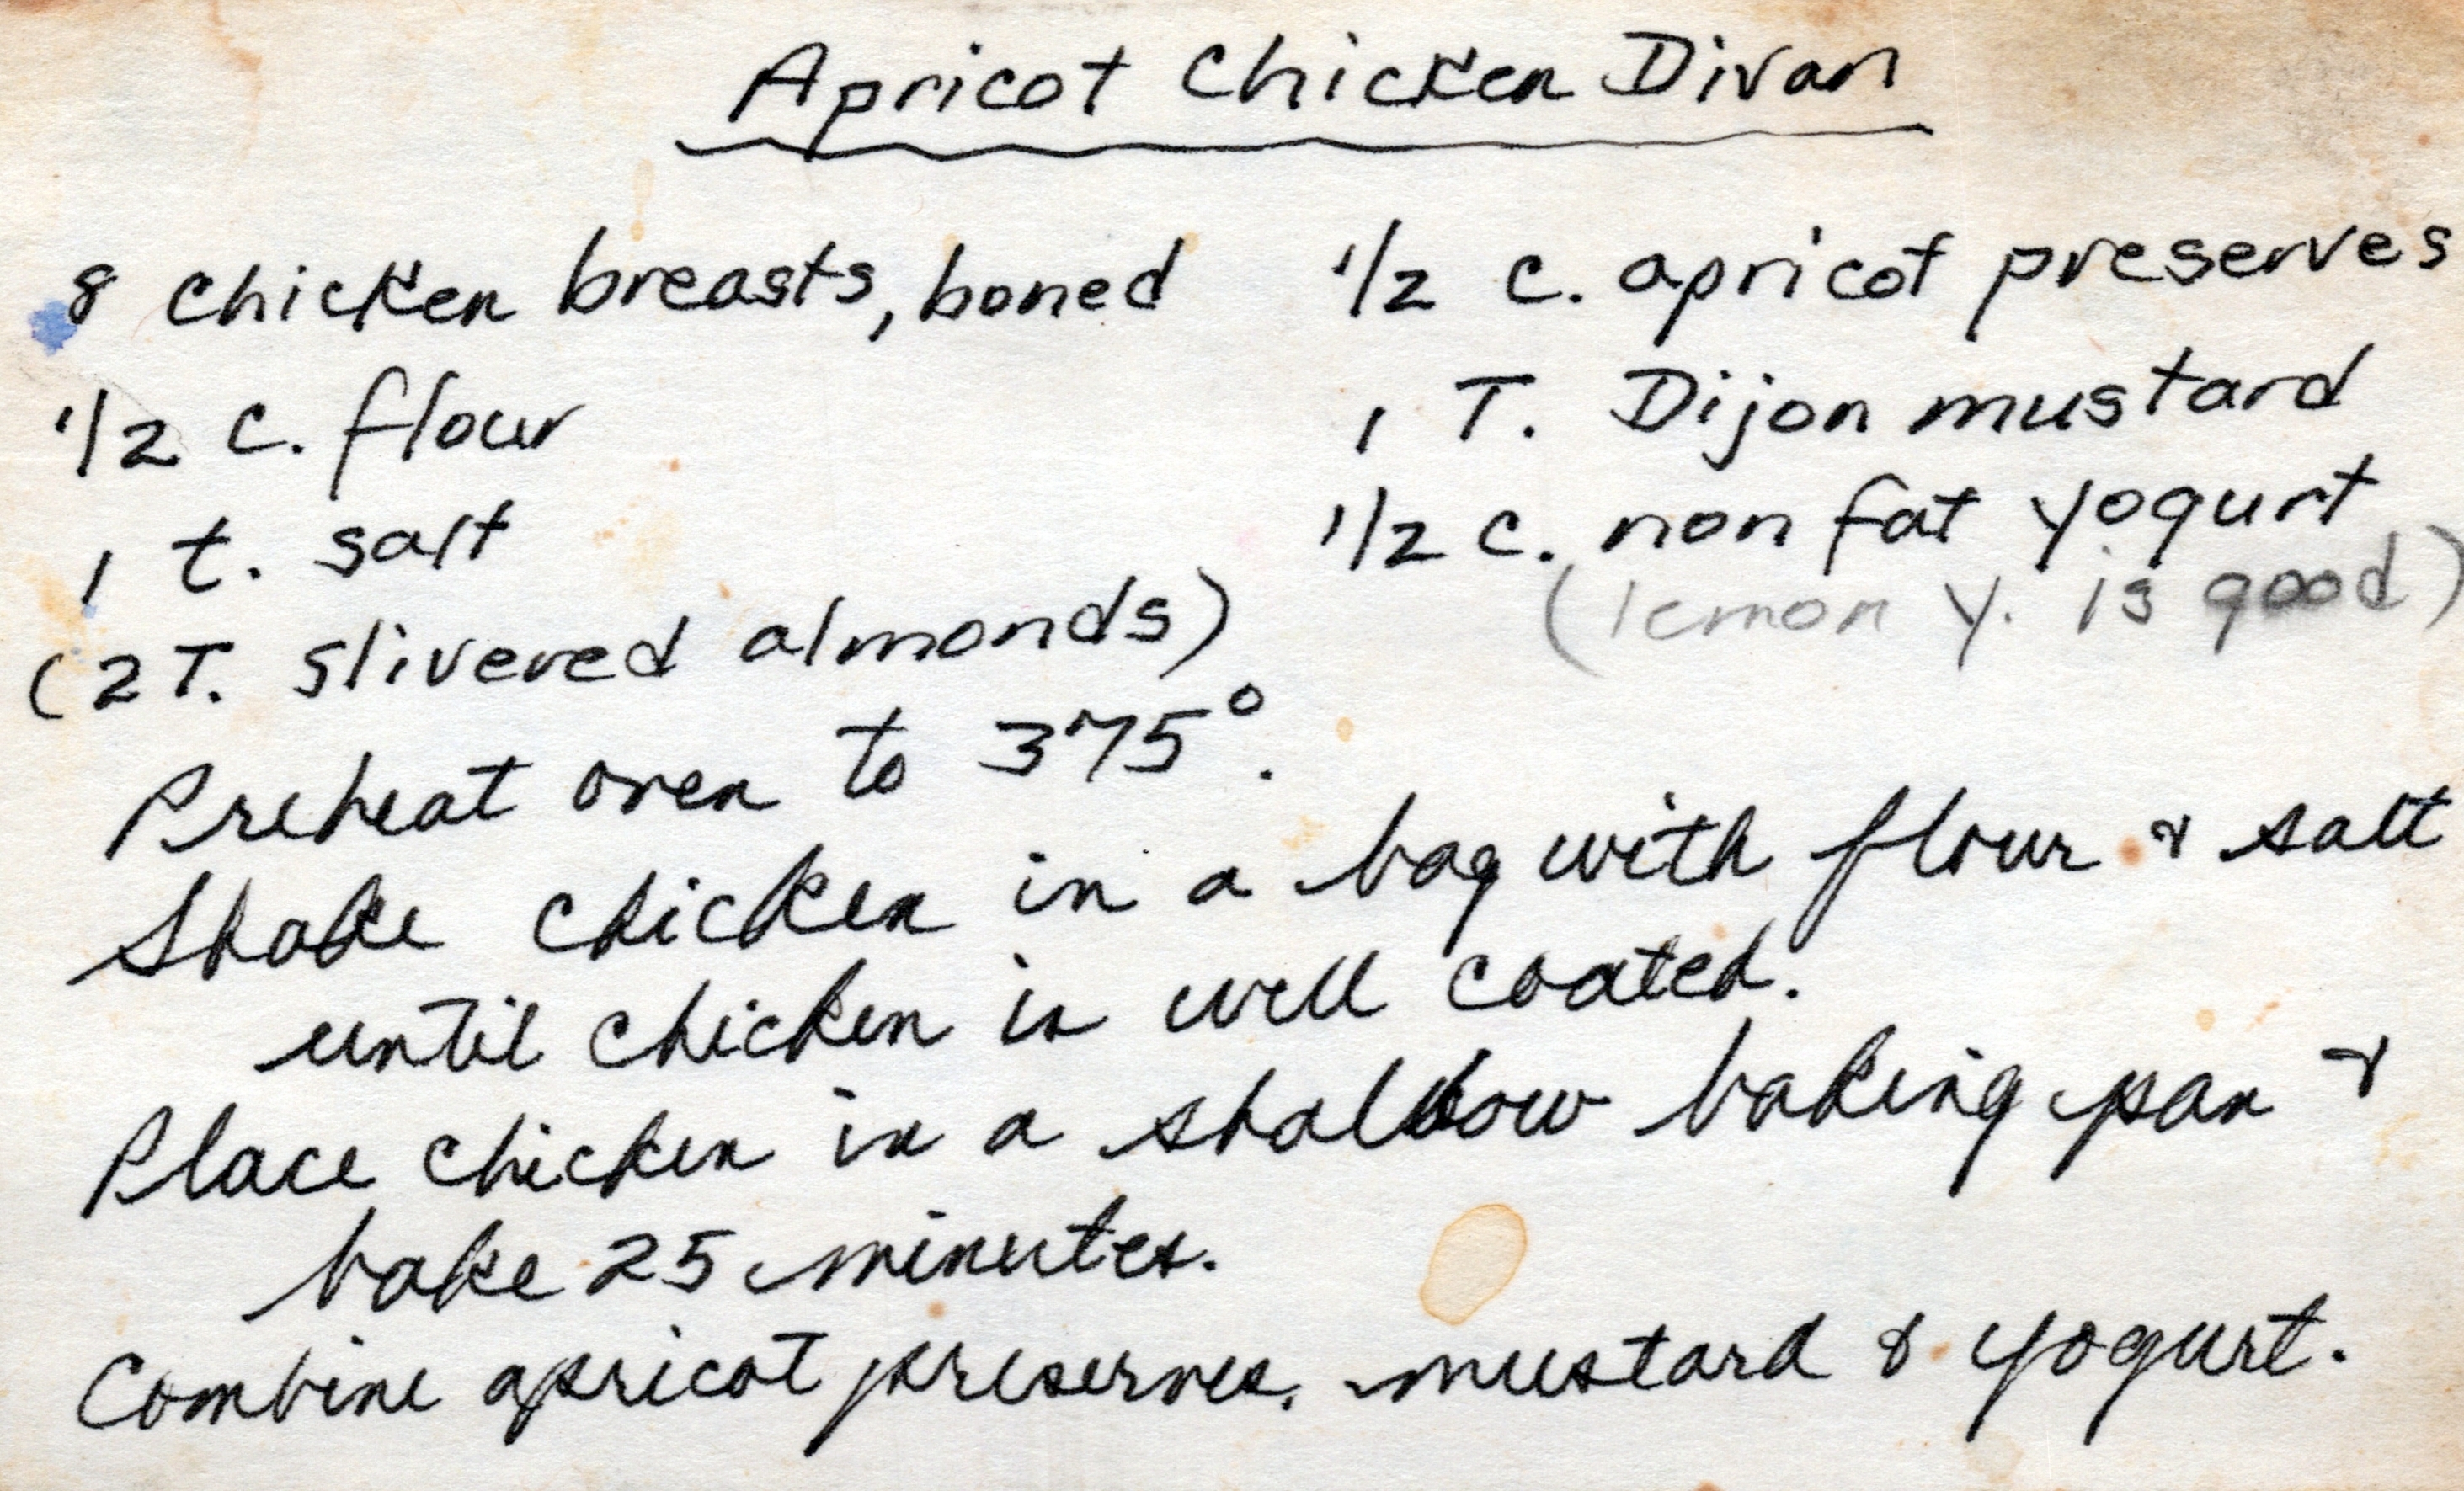 Apricot Chicken Divan
8 chicken breasts, boned
1/2 c. flour
1 t. salt
(2 T. slivered almonds)
1/2 c. apricot preserves
1 T. Dijon mustard
1/2 c. non fat yogurt
(lemon y. is good)
Preheat oven to 375°.
Shake chicken in a bag with flour & salt
until chicken is well coated.
Place chicken in a shallow baking pan &
bake 25 minutes.
Combine apricot preserves, mustard & yogurt.